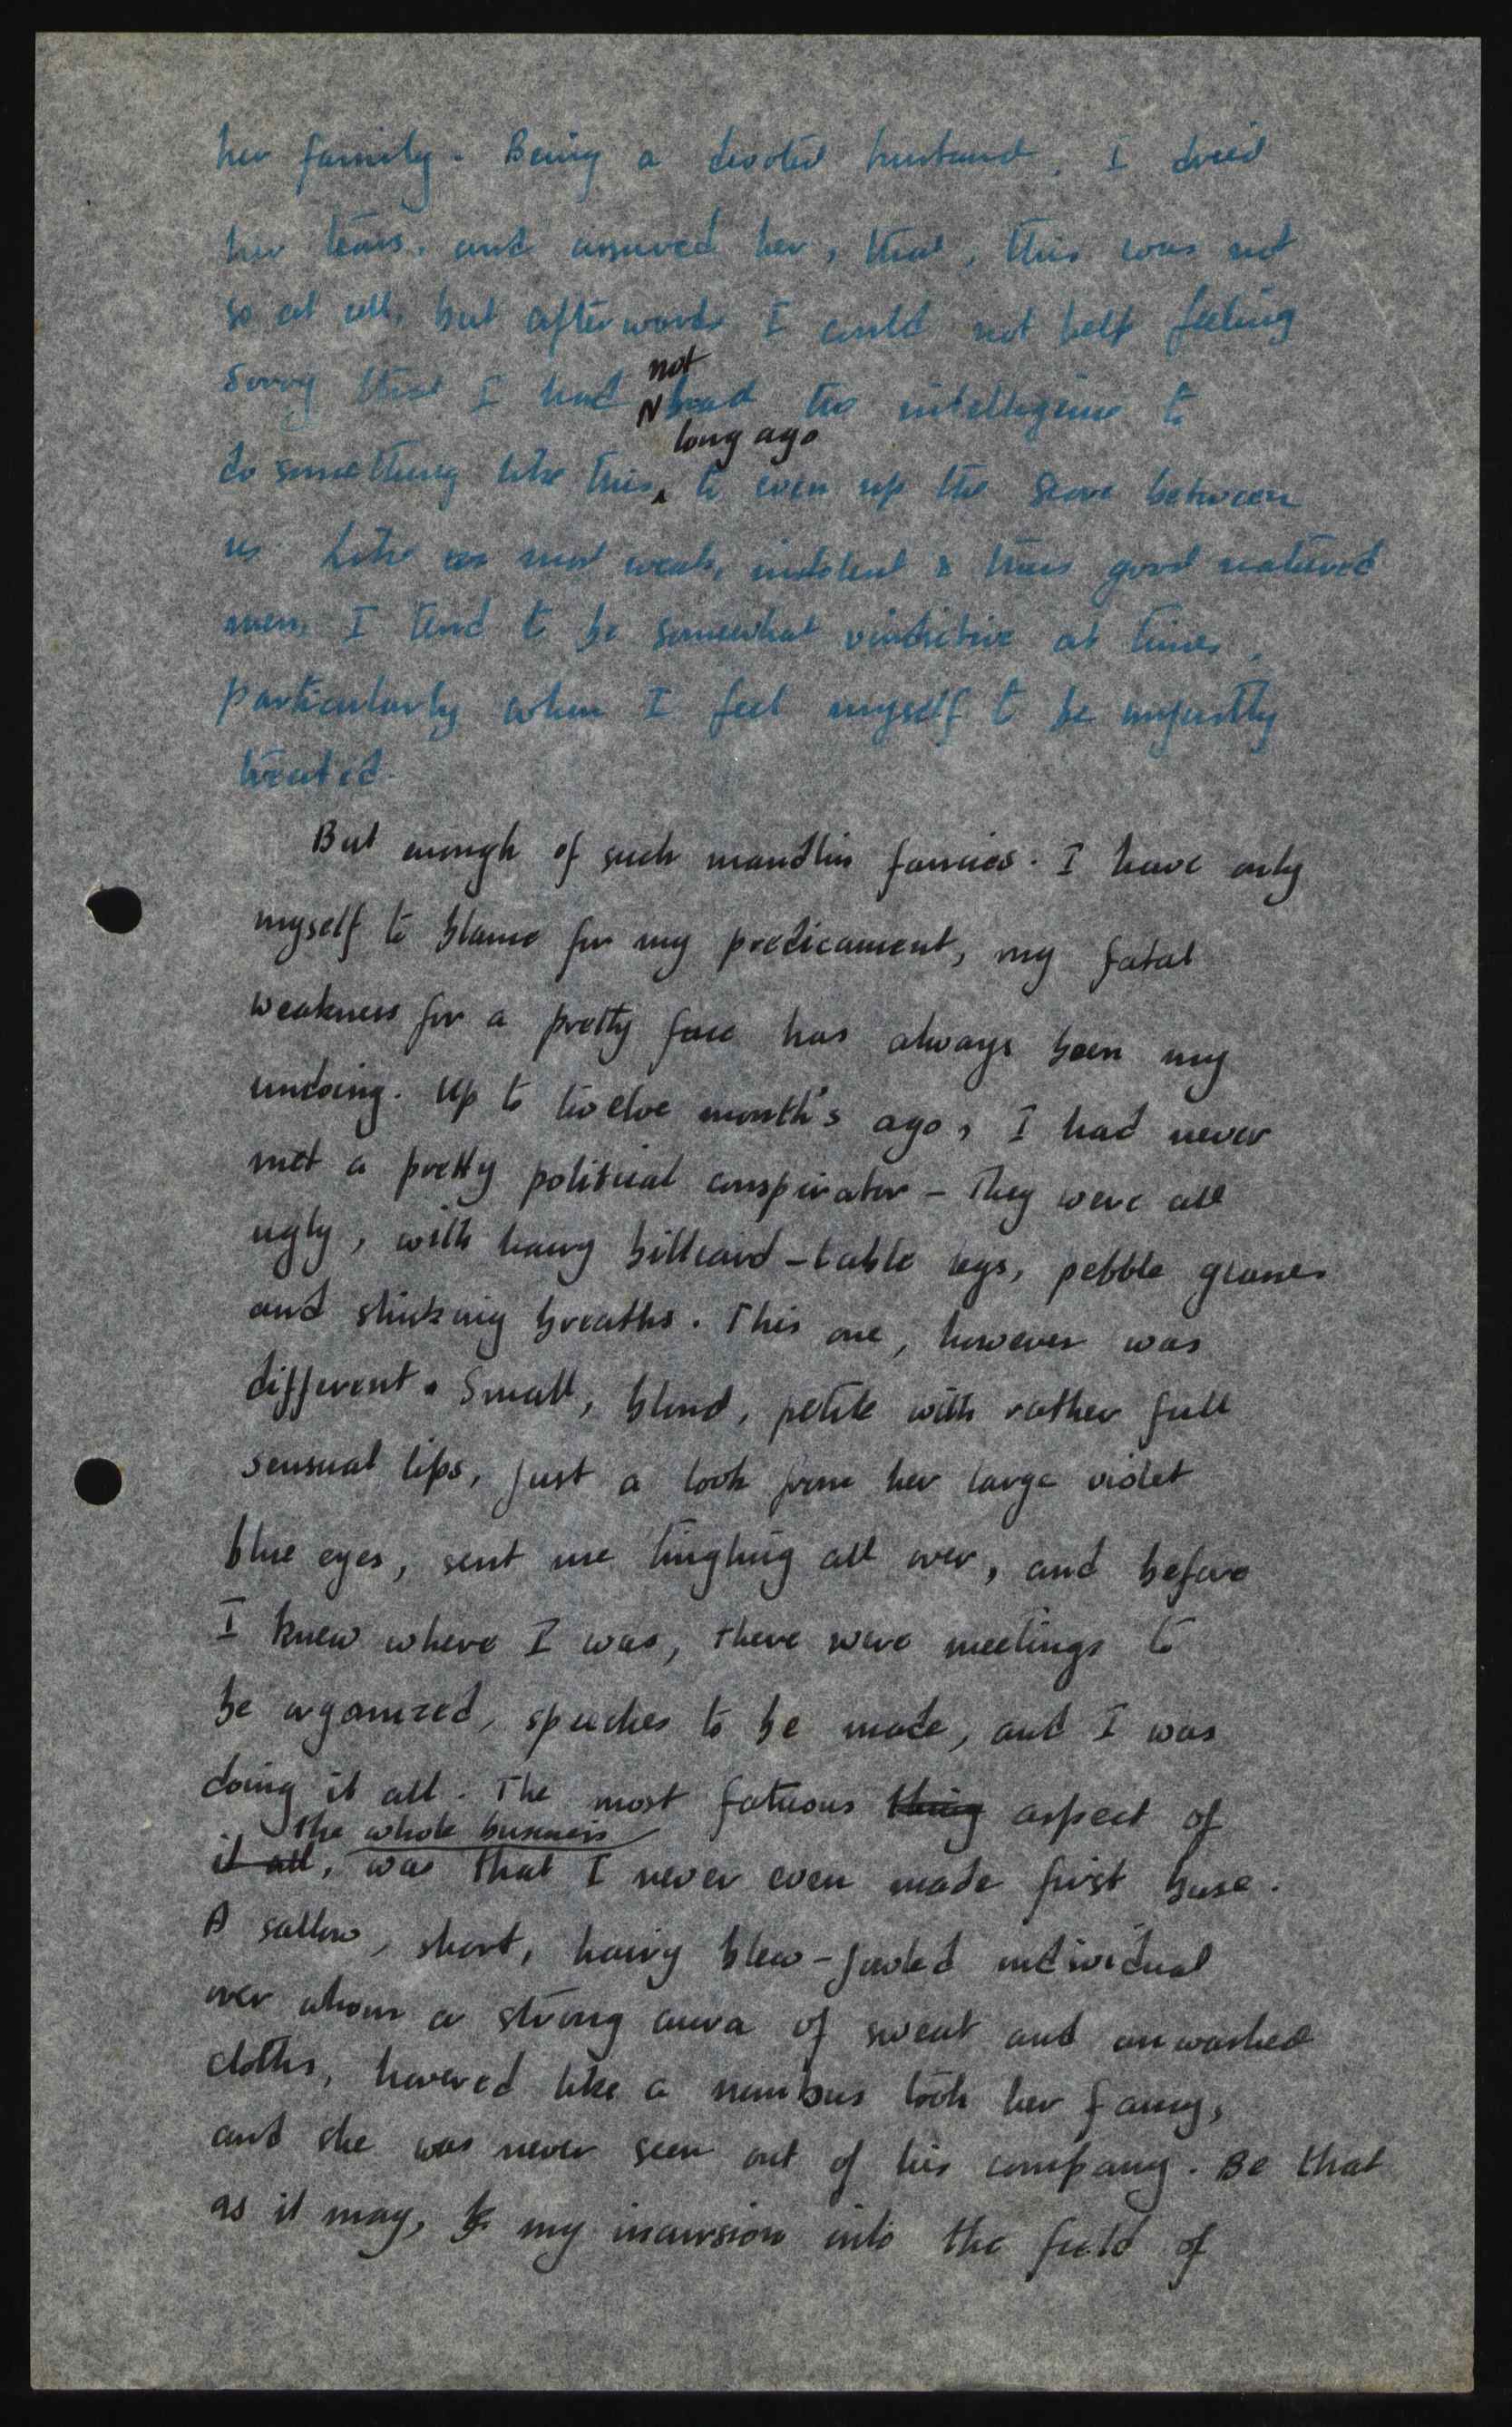 her family. Being a devoted husband, I dried
her tears, and assured her, that, this was not
so at all, but afterwards I could not help feeling
not
sorry that I had had the intelligence to
long ago
do something like this, to even up the score between
us. Like most weak, indolent & thus good natured
men, I tend to be somewhat vindictive at times,
particularly when I feel myself to be unjustly
treated.
But enough of such maudlin fancies. I have only
myself to blame for my predicament, my fatal
weakness for a pretty face has always been my
undoing. Up to twelve month's ago, I had never
met a pretty political conspirator - They were all
ugly, with hairy billiard-table legs, pebble glasses
and stinking breaths. This one, however was
different. Small, blond, petite with rather full
sensual lips, just a look from her large violet
blue eyes, sent me tingling all over, and before
I knew where I was, there were meetings to
be organized, speeches to be made, and I was
doing it all. The most fatuous thing aspect of
the whole business
it all, was that I never even made first base.
A sallow, short, hairy blew-jowled individual
over whom a strong aura of sweat and unwashed
cloths, hovered like a nimbus took her fancy,
and she was never seen out of his company. Be that
as it may, my incursion into the field of